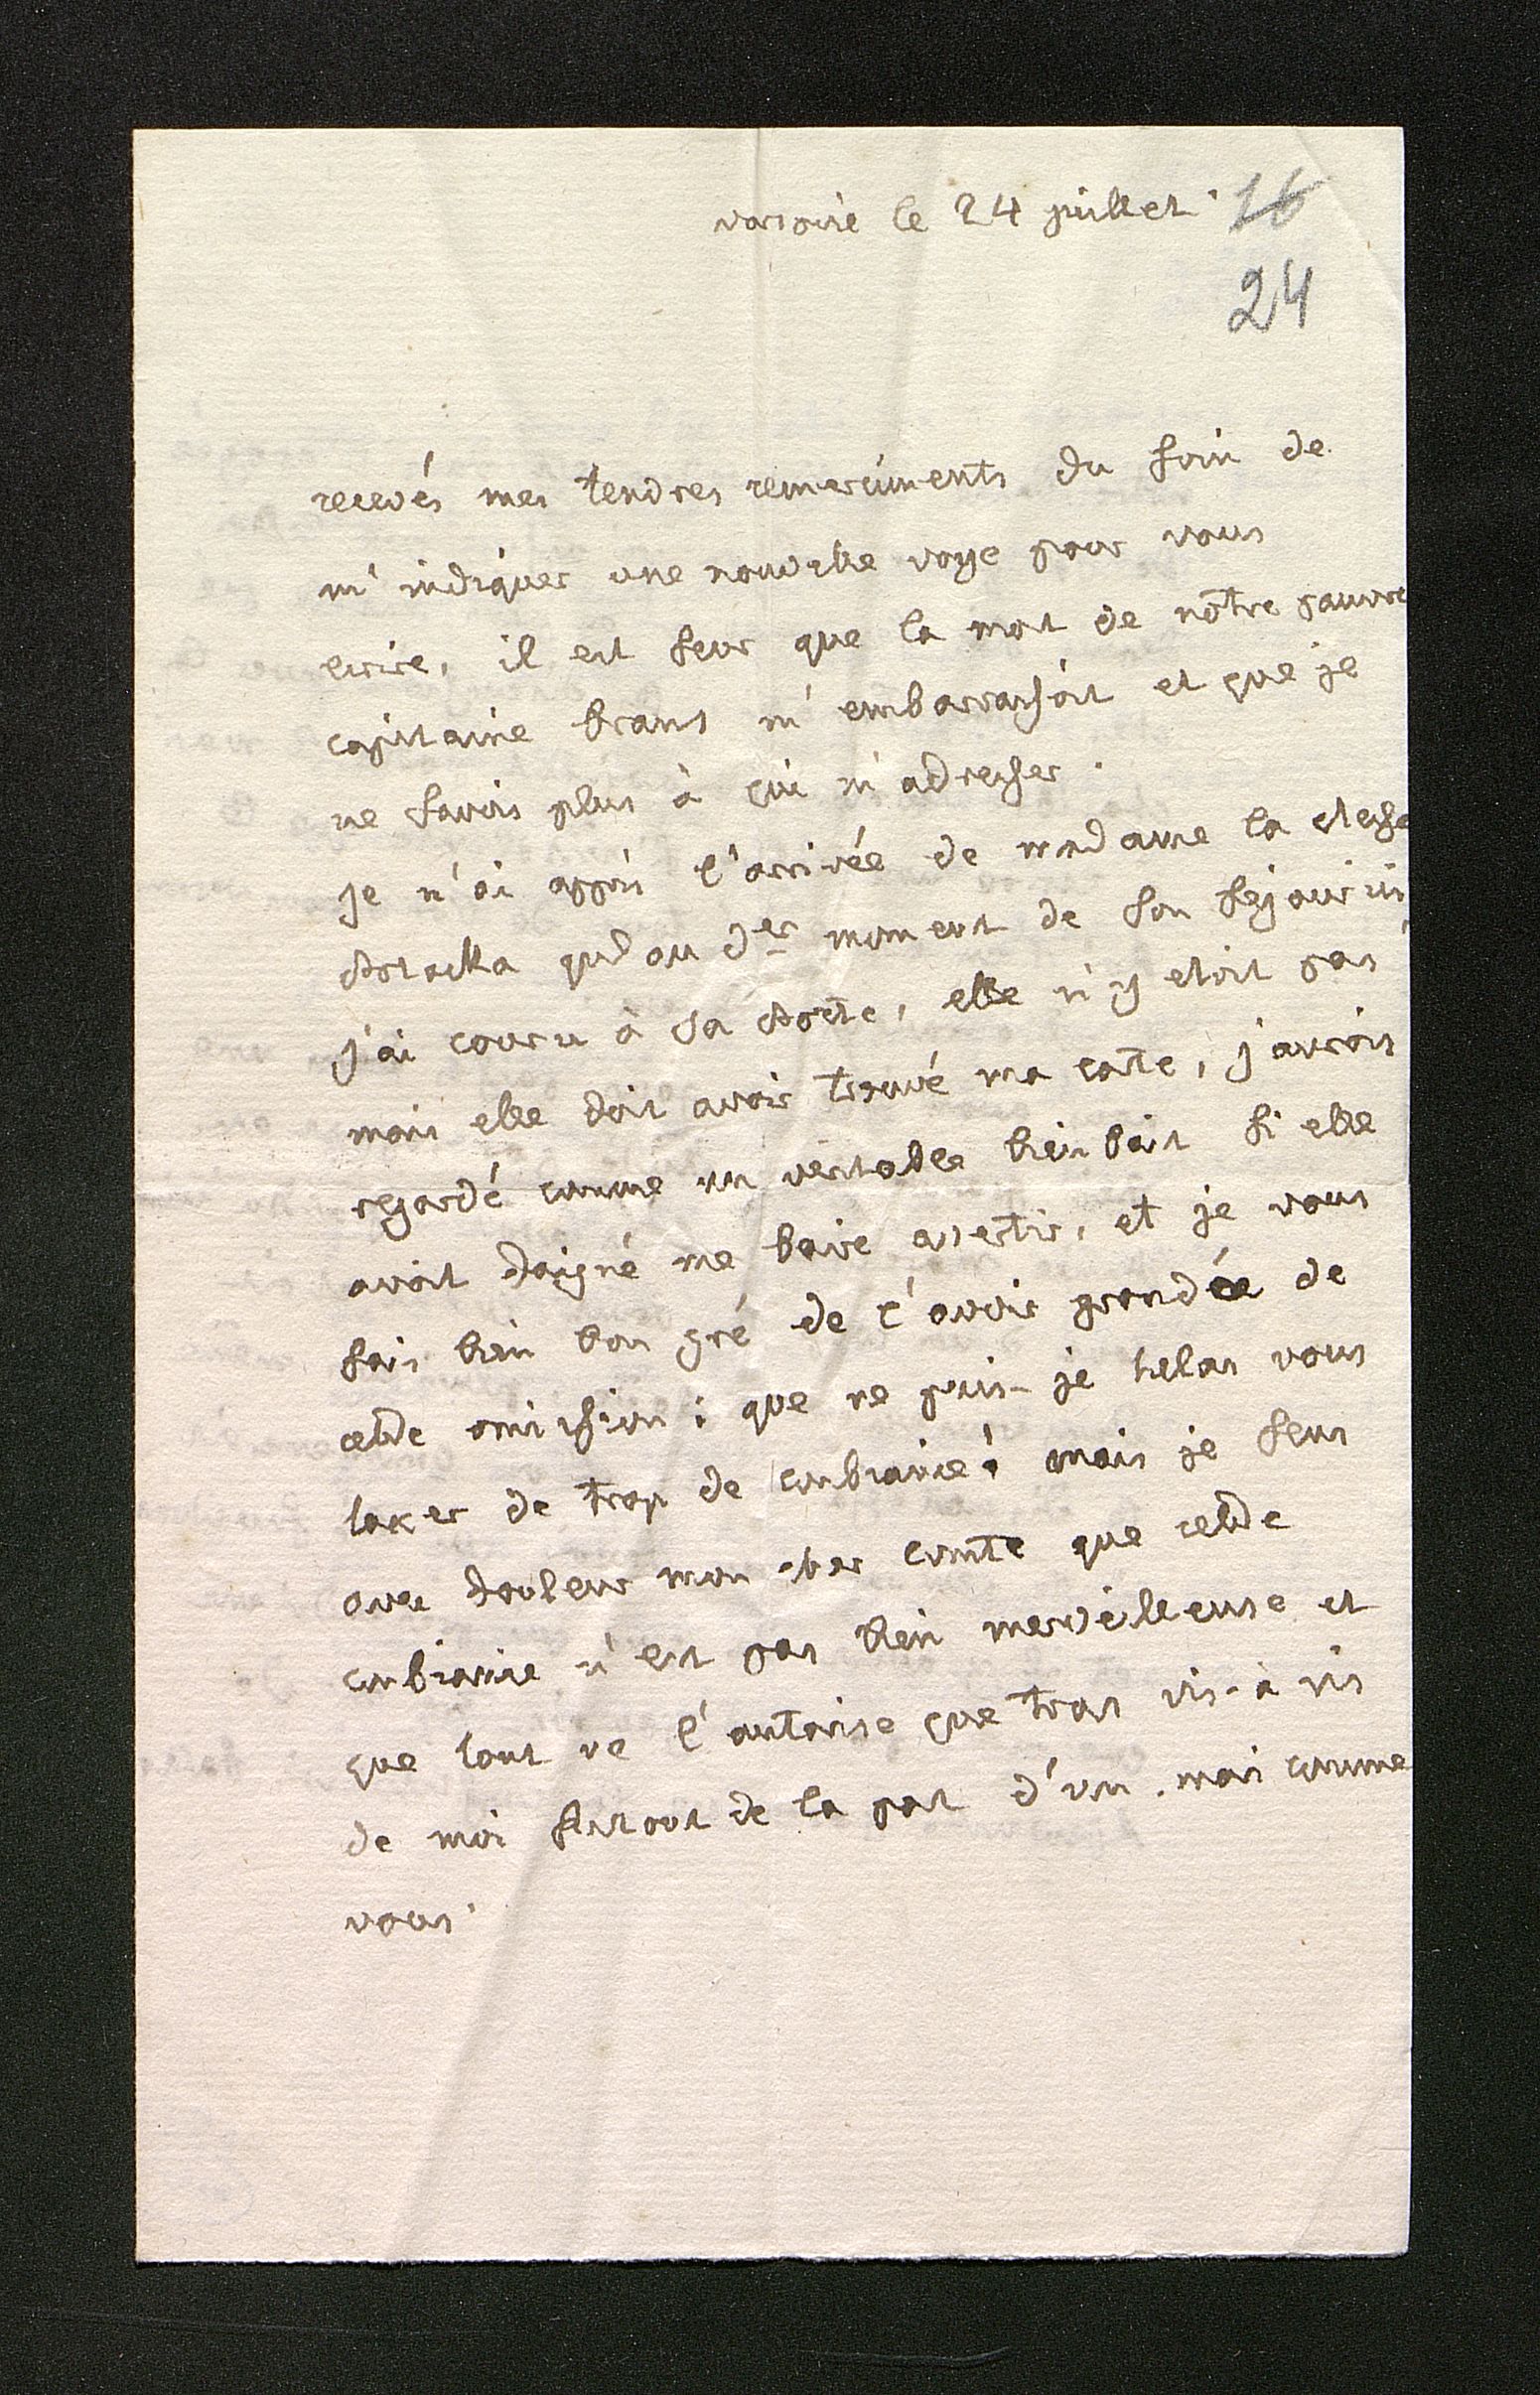 varsovie le 24 juillet. 16
24
recevés mes tendres remerciments du soin de
m'indiquer une nouvelle voye pour vous
ecrire, il est seur que la mort de nôtre pauvre
capitaine brans m'embarrassoit et que je
ne savois plus à qui m'adresser.
je n'ai appris l'arrivée de madame la
qu'au der moment de son sejour ici
j'ai couru à sa porte, elle n'y etoit pas
mais elle doit avoir trouvé ma carte, j'aurois
regardé comme un veritable bienfait si elle
avoit daigné me faire avertir, et je vous
sais bien bon gré de l'avoir grondée de
cette omission; que ne puis-je helas vous
taxer de trop de confiance! mais je sens
avec douleur mon cher comte que cette
confiance n'est pas bien merveilleuse et
que tout ne l'autorise que trop vis-à vis
de moi surtout de la part d'un. mais comme
vous.